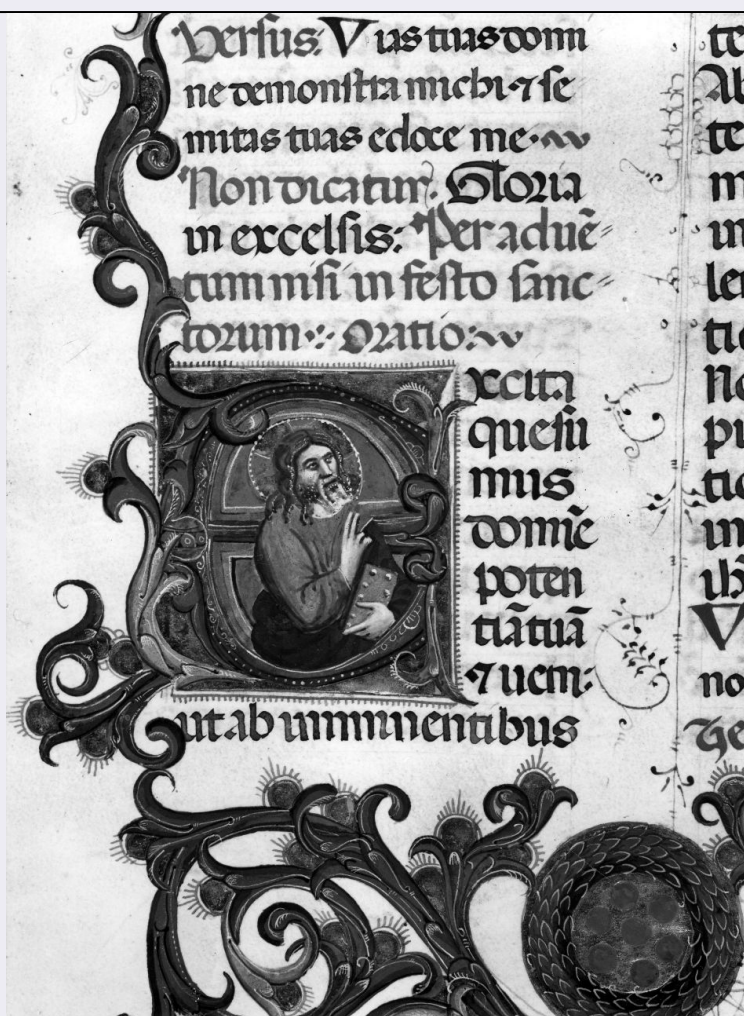 Versus: Vias tuas domi
ne demonstra michi ⁊ se
mitas tuas edoce me.
Non dicatur. Gloria
in excelsis: Per aduē
tum nisi in festo sanc
torum: Oratio:
Excita
quesu
mus
domīe
poten
tiā tuā
⁊ ueni:
ut ab imminentibus
te
Ab
te
m
in
le
ti
No
pr
tio
in
ib
V
no
Ge